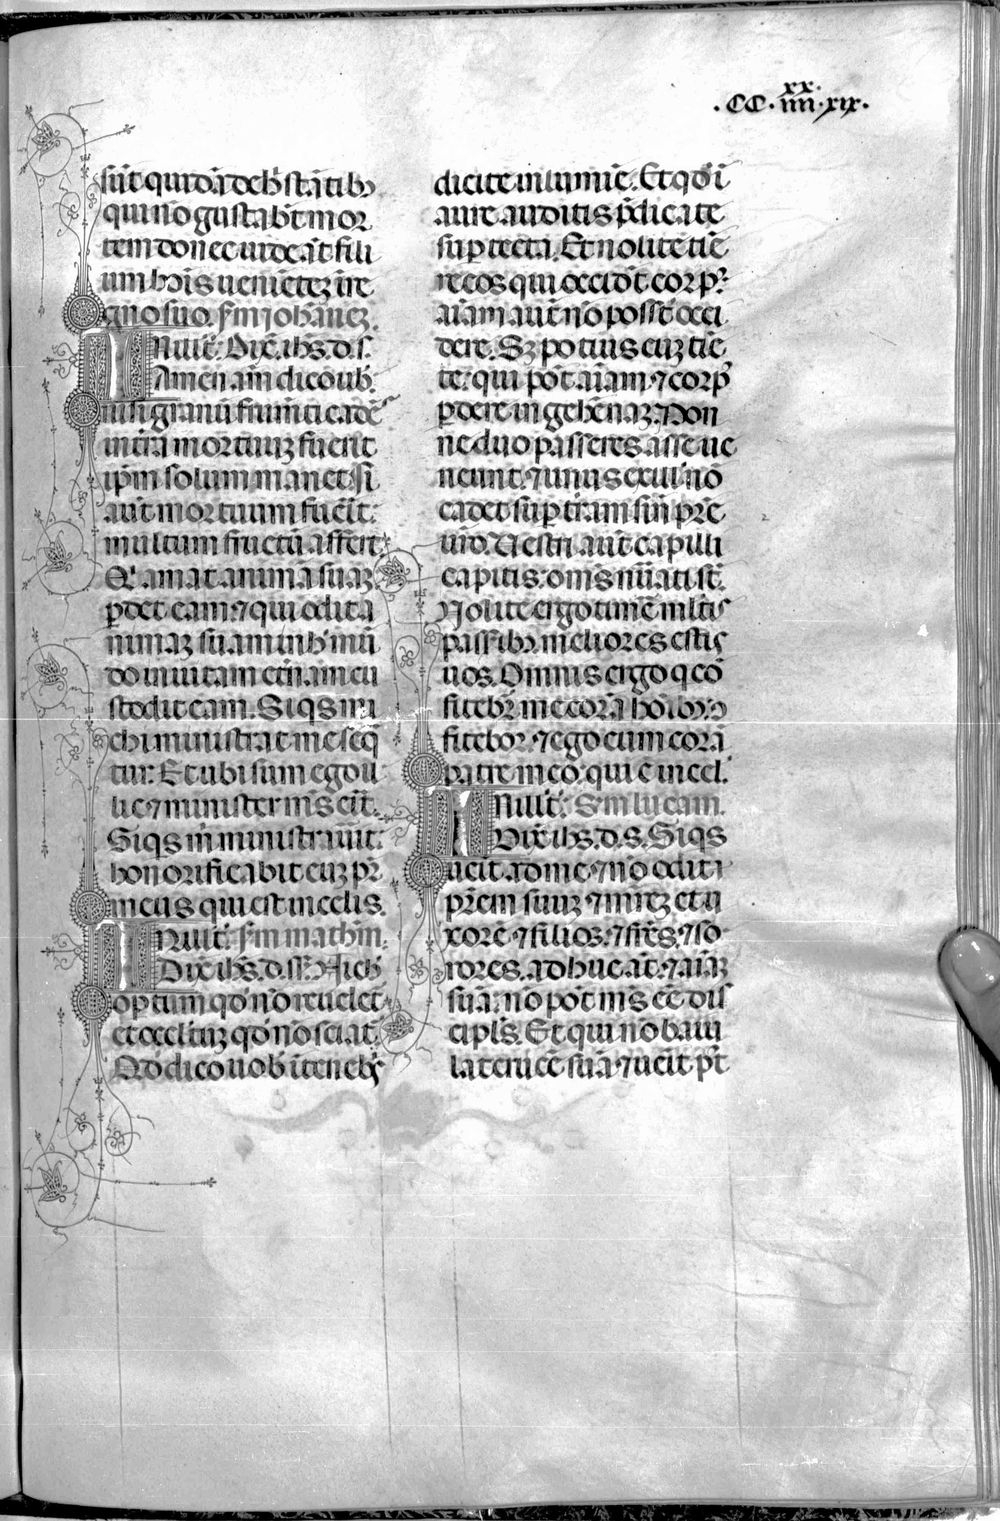 .CC.
xx
iiii.xix.
sūt quidā de hˢ stātibꝫ
qui nō gustabūt mor
tem donec uideāt fili
um hoīs ueniētez ī re
gno suo. Sm johanez.
IN illi t̄. Dix̄. ihs. d. s.
Amen am̄ dico uob̄.
nisi granū frumti cadē̄s
in trā mortuuꝫ fuerit
ipm̄ solum manet. Si
aut̄ mortuum fuēit:
multum fructū affert.
Qi amat animā suaꝫ
ꝑdet eam: ⁊ qui odit a
nimaꝫ suam in hˢ mū
do in uitam etn̄am cu
stodit eam. Siqˢ mi
chi ministrat me seq̄
tur: Et ubi sum ego il
lic ⁊ minister mˢ eīt.
Siqˢ m̄ ministrauīt:
honorificabit euꝫ pr̄
meus qui est in celis.
IN illi t̄. Sm mathm̄.
Dix̄. ihˢ. d. s. Nich̄
optum qd̄ nō reueleť
et occltuꝫ qd̄ nō sciat̄.
Qd̄ dico uob̄ ī tenebˢ
dicite in lumīe. Et qd̄ ī
aure auditis p̄dicate
suꝑ tecta. Et nolite tīe
re eos qui occidūt corpˢ
aīam aut̄ nō possūt occi
dere. Sꝫ potius euꝫ tīe
te: qui pot̄ aīam ⁊ corpˢ
ꝑdere in gehēnaꝫ. Non
ne duo passeres asse ue
neunt: ⁊ unus ex illˢ nō
cadet suꝑ trām sin̄ prē
uro. Uestri aut̄ capilli
capitis: om̄s nūati st̄.
Nolite ergo timē mltis
passibꝫ meliores estis
uos. Omnis ergo q cō
fitebr̄ me corā hoībꝫ: ꝯ
fitebor: ⁊ ego eum corā
patre meo: qui ē in cel̄.
IN illi t̄. Sm lucam.
Dix̄ ihˢ. d. s. Siqˢ
uēit ad me: ⁊ nō odit
prēm suuꝫ ⁊ mrēꝫ et u
xorē ⁊ filioꝫ. ⁊ frēs. ⁊ so
rores. adhuc āt. ⁊ aīaꝫ
suā: nō pot̄ mˢ eē dis
ciplˢ. Et qui nō baiu
lat crucē suā. ⁊ uēit pt̄